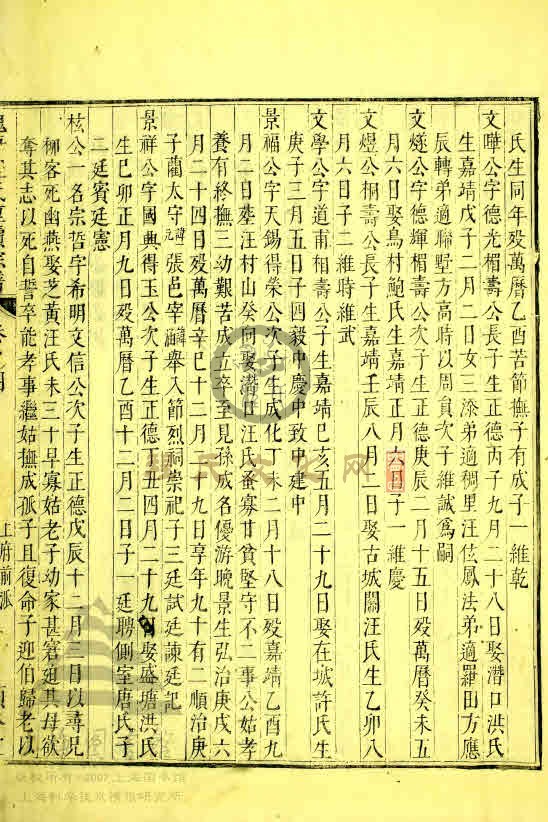 氏生同年殁萬曆乙酉苦節撫子有成子一維乾
文曄公字德光楣壽公長子生正德丙子九月二十八日娶潛口洪氏
生嘉靖戊子二月二日女三添弟適稠里汪伭鳳法弟適羅田方應
辰轉弟適聯墅方高時以周貟次子維誠爲嗣
文燧公字德輝楣壽公次子生正德庚辰二月十五日殁萬曆癸未五
月六日娶鳥村鮑氏生嘉靖正月六日子一維慶
文煜公桐壽公長子生嘉靖壬辰八月二日娶古城關汪氏生乙卯八
月六日子二維時維武
文學公字道甫相壽公子生嘉靖巳亥五月二十九日娶在城許氏生
庚子三月五日子四毅中慶中致中建中
景福公字天錫得榮公次子生成化丁未二月十八日殁嘉靖乙酉九
月二日塟汪村山癸向娶潛口汪氏蚤寡甘貧堅守不二事公姑孝
養有終撫三幼艱苦成立卒至見孫成名優游晚景生弘治庚戌六
月二十四日殁萬曆辛巳十二月二十九日享年九十有二順治庚
子蘭太守諱張邑宰諱舉入節烈祠崇祀子三廷試廷諫廷記
景祥公字國典得玉公次子生正德丁丑四月二十九日娶盛塘洪氏
生巳卯正月九日殁萬曆乙酉十二月二日子一廷聘側室唐氏子
二廷賓廷憲
柭公一名宗哲字希明文信公次子生正德戊辰十二月三日以尋兄
柳客死幽燕娶芝黃汪氏未三十早寡姑老子幼家甚窘迫其母欲
奪其志以死自誓卒能孝事繼姑撫成孤子且復命子迎伯歸老以
上府前派
版权所有©2007上海图书馆